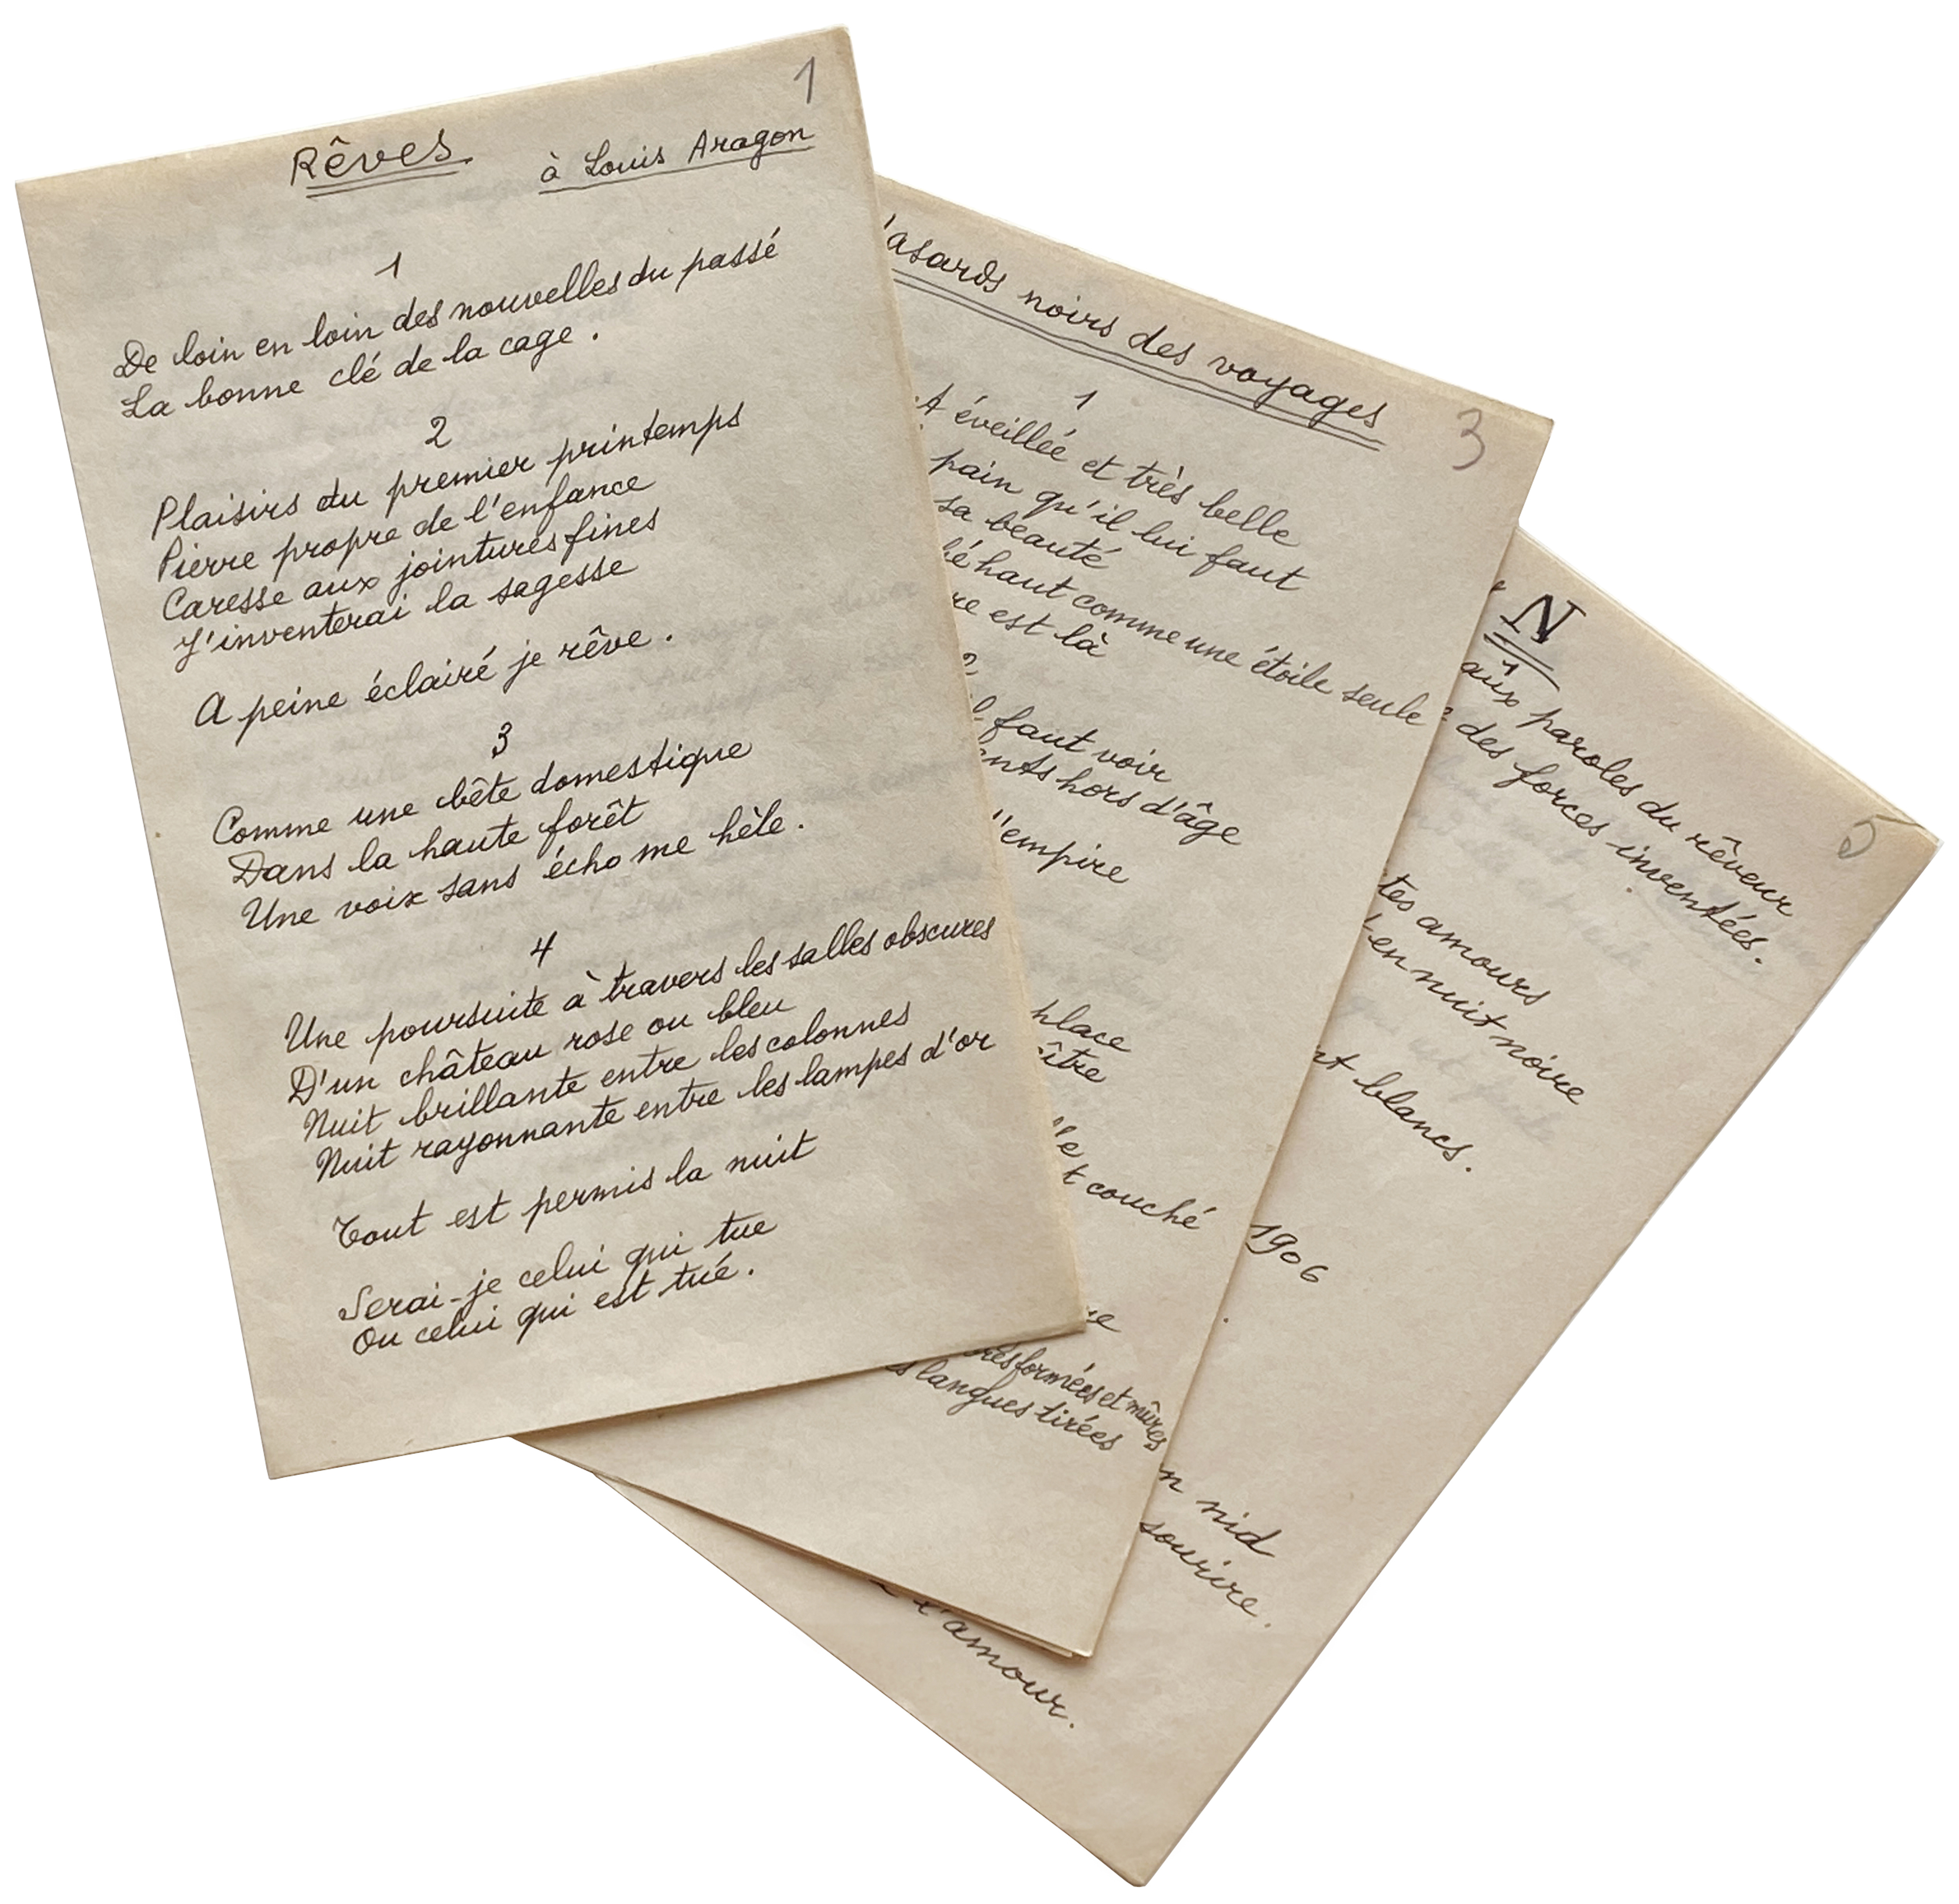 1
Rêves
à Louis Aragon
1
De loin en loin des nouvelles du passé
La bonne clé de la cage.
2
Plaisirs du premier printemps
Pierre propre de l'enfance
Caresse aux jointures fines
J'inventerai la sagesse
A peine éclairé je rêve.
3
Comme une bête domestique
Dans la haute forêt
Une voix sans écho me hèle.
4
Une poursuite à travers les salles obscures
D'un château rose ou bleu
Nuit brillante entre les colonnes
Nuit rayonnante entre les lampes d'or
Tout est permis la nuit
Serai-je celui qui tue
Ou celui qui est tué.
3
asards noirs des voyages
1
A éveillée et très belle
pain qu'il lui faut
sa beauté
é haut comme une étoile seule
re est là
2
faut voir
ants hors d'âge
l'empire
place
ître
le
t couché
e
formées et mûres
langues tirées
5
N
1
aux paroles du rêveur
des forces inventées.
tes amours
en nuit noire
nt blancs.
1906
n nid
sourire.
l'amour.